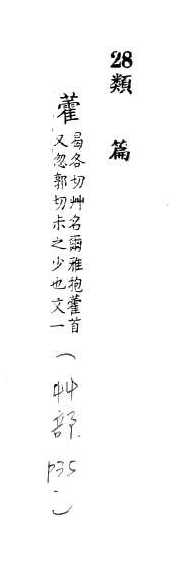 28 類篇
藿 曷各切艸名爾雅抱藿首
又忽郭切尗之少也文一
（艸部 p35）